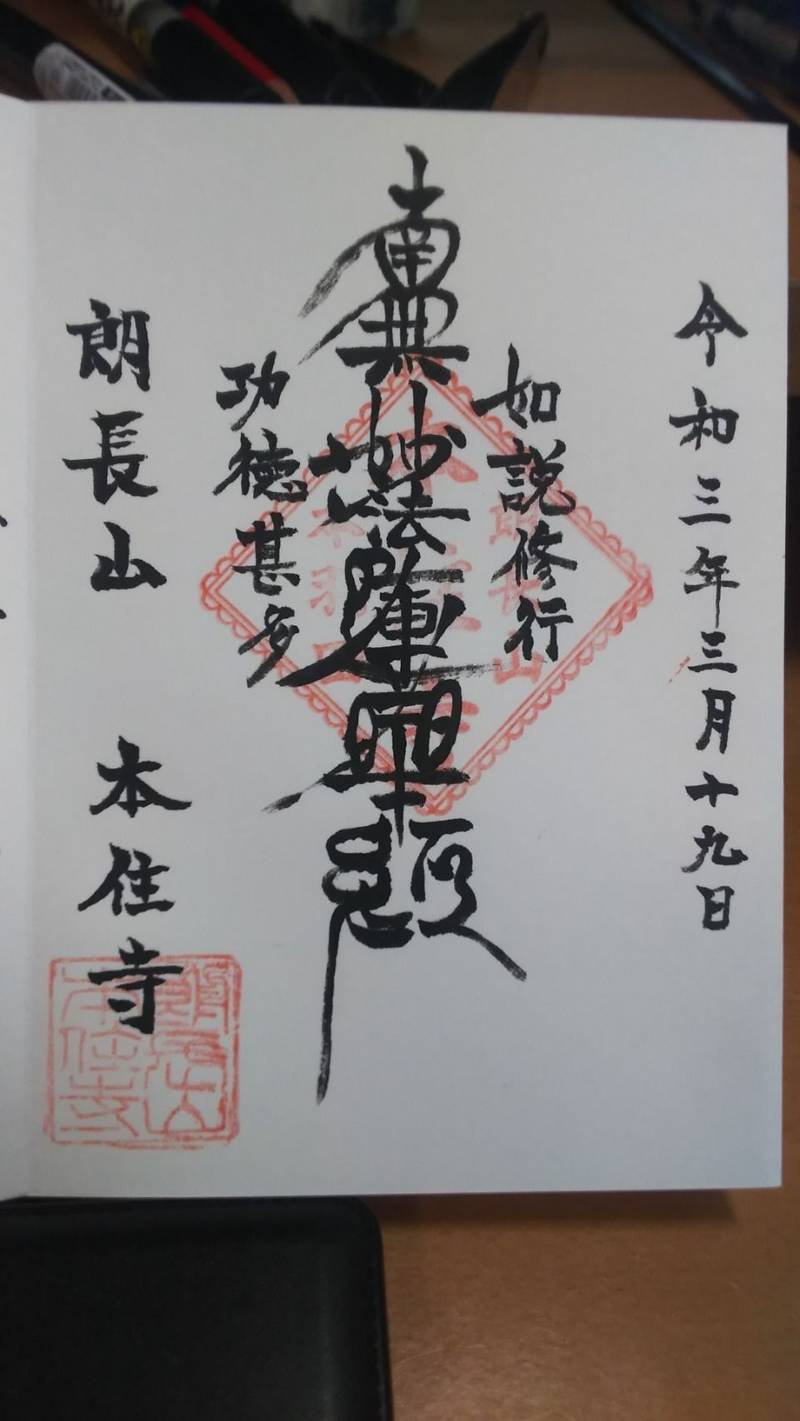 令和三年三月十九日
如説修行
南無妙法蓮華経
功徳甚多
朗長山 本住寺
朗長山
本住寺